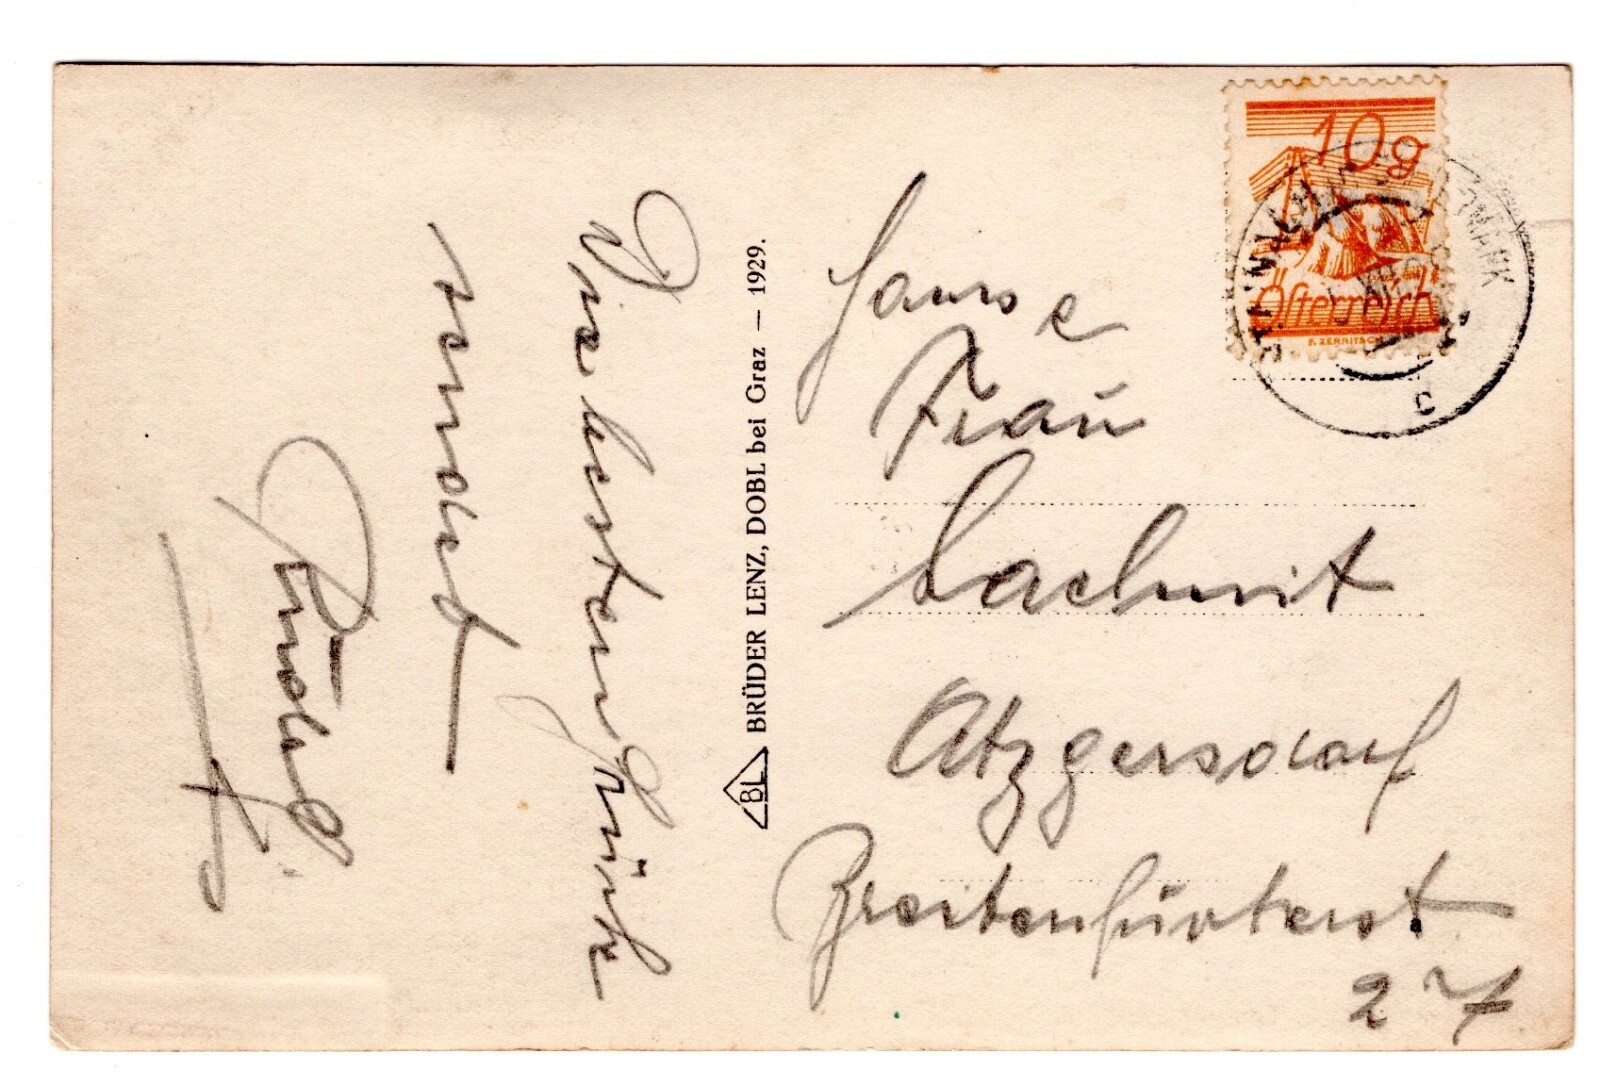 Die besten Grüße
sendet
Rudolf
BL BRÜDER LENZ, DOBL bei Graz — 1929.
10g
Österreich
F. ZERRITSCH
Frau
Lachnit
Atzgersdorf
Breitenfurterst
27